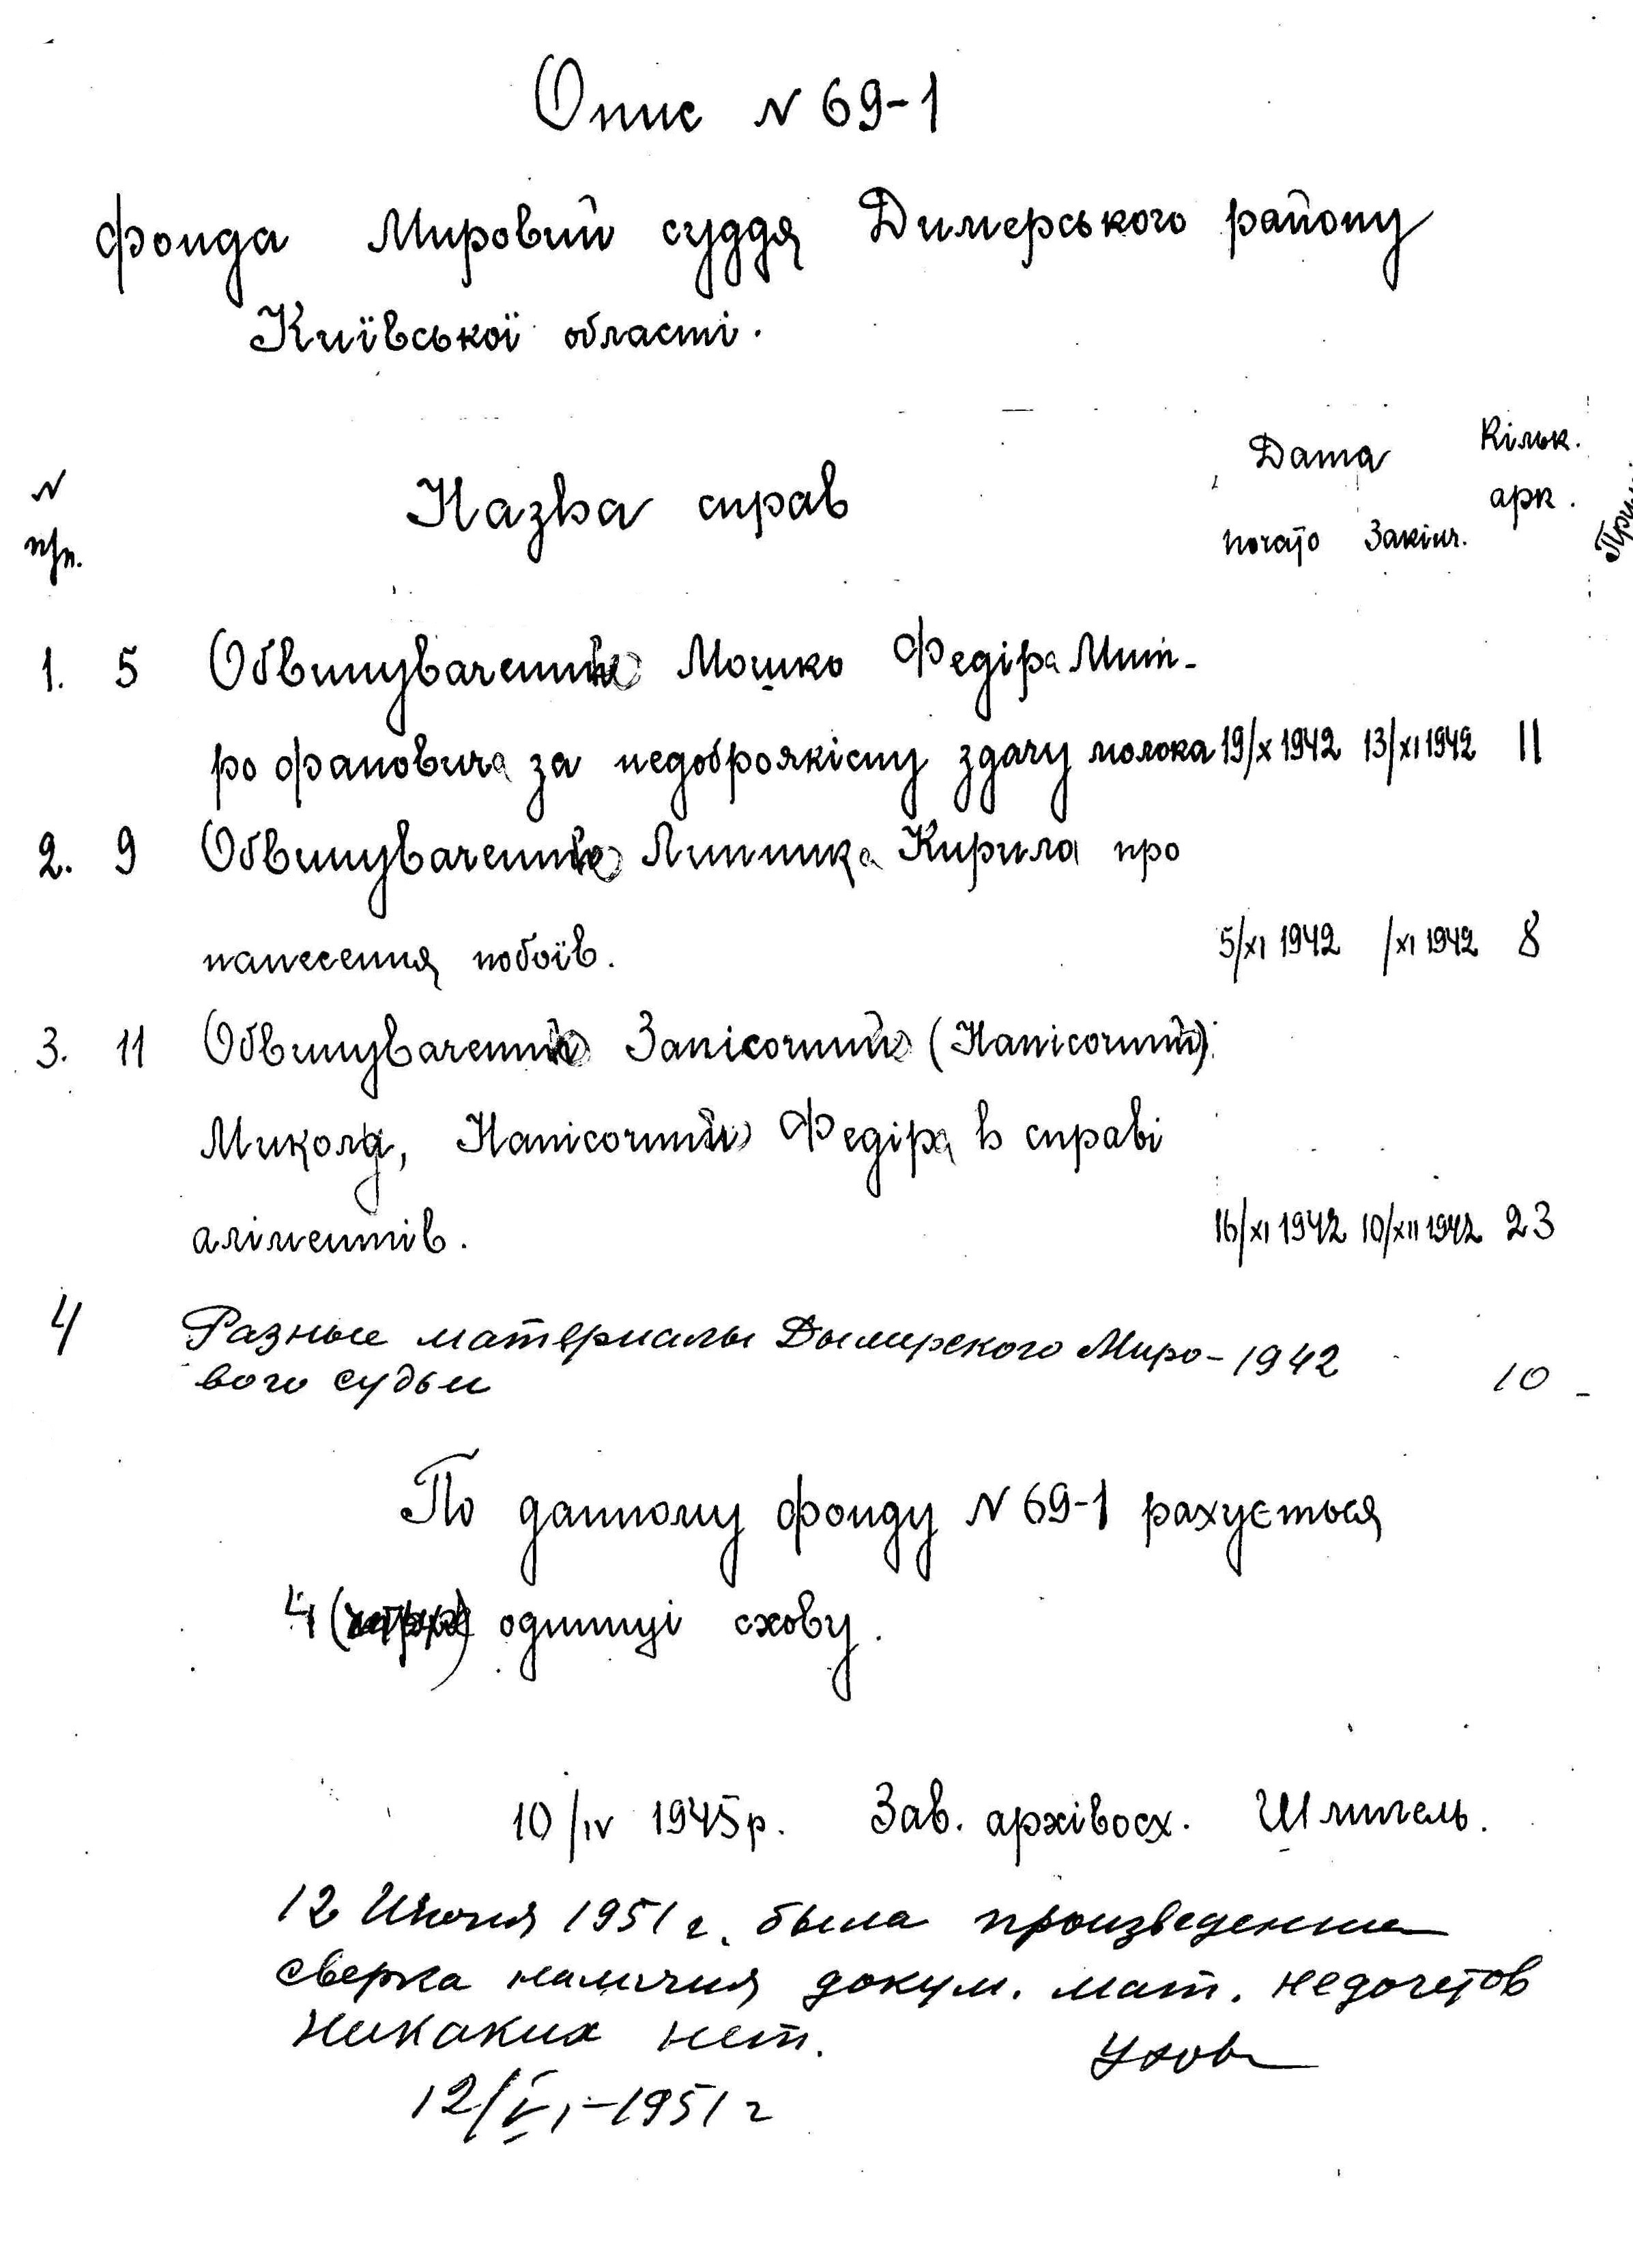 Опис № 69-1
фонда Мировий суддя Димерського району
Київської області.
Дата Кільк.
№ Назва справ арк.
п/п. почато Закінч. Прим
1. 5 Обвинувачення Мошко Федіра Мит-
рофановича за недоброякісну здачу молока 19/X 1942 13/XI 1942 11
2. 9 Обвинувачення Липника Кирила про
нанесення побоїв. 5/XI 1942 /XI 1942 8
3. 11 Обвинувачення (Нанісочний)
Микола, Федіра в справі
аліментів. 16/XI 1942 10/XII 1942 23
4 Разные материалы Дымерского Миро- 1942
вого судьи 10 -
По данному фонду № 69-1 рахується
4 (чотири) одиниці схову.
10/IV 1945 р. Зав. архівосх. Шпигель.
12 Июня 1951 г. была произведенна
сверка наличия докум. мат. недочетов
никаких нет.
12/VI-1951 г